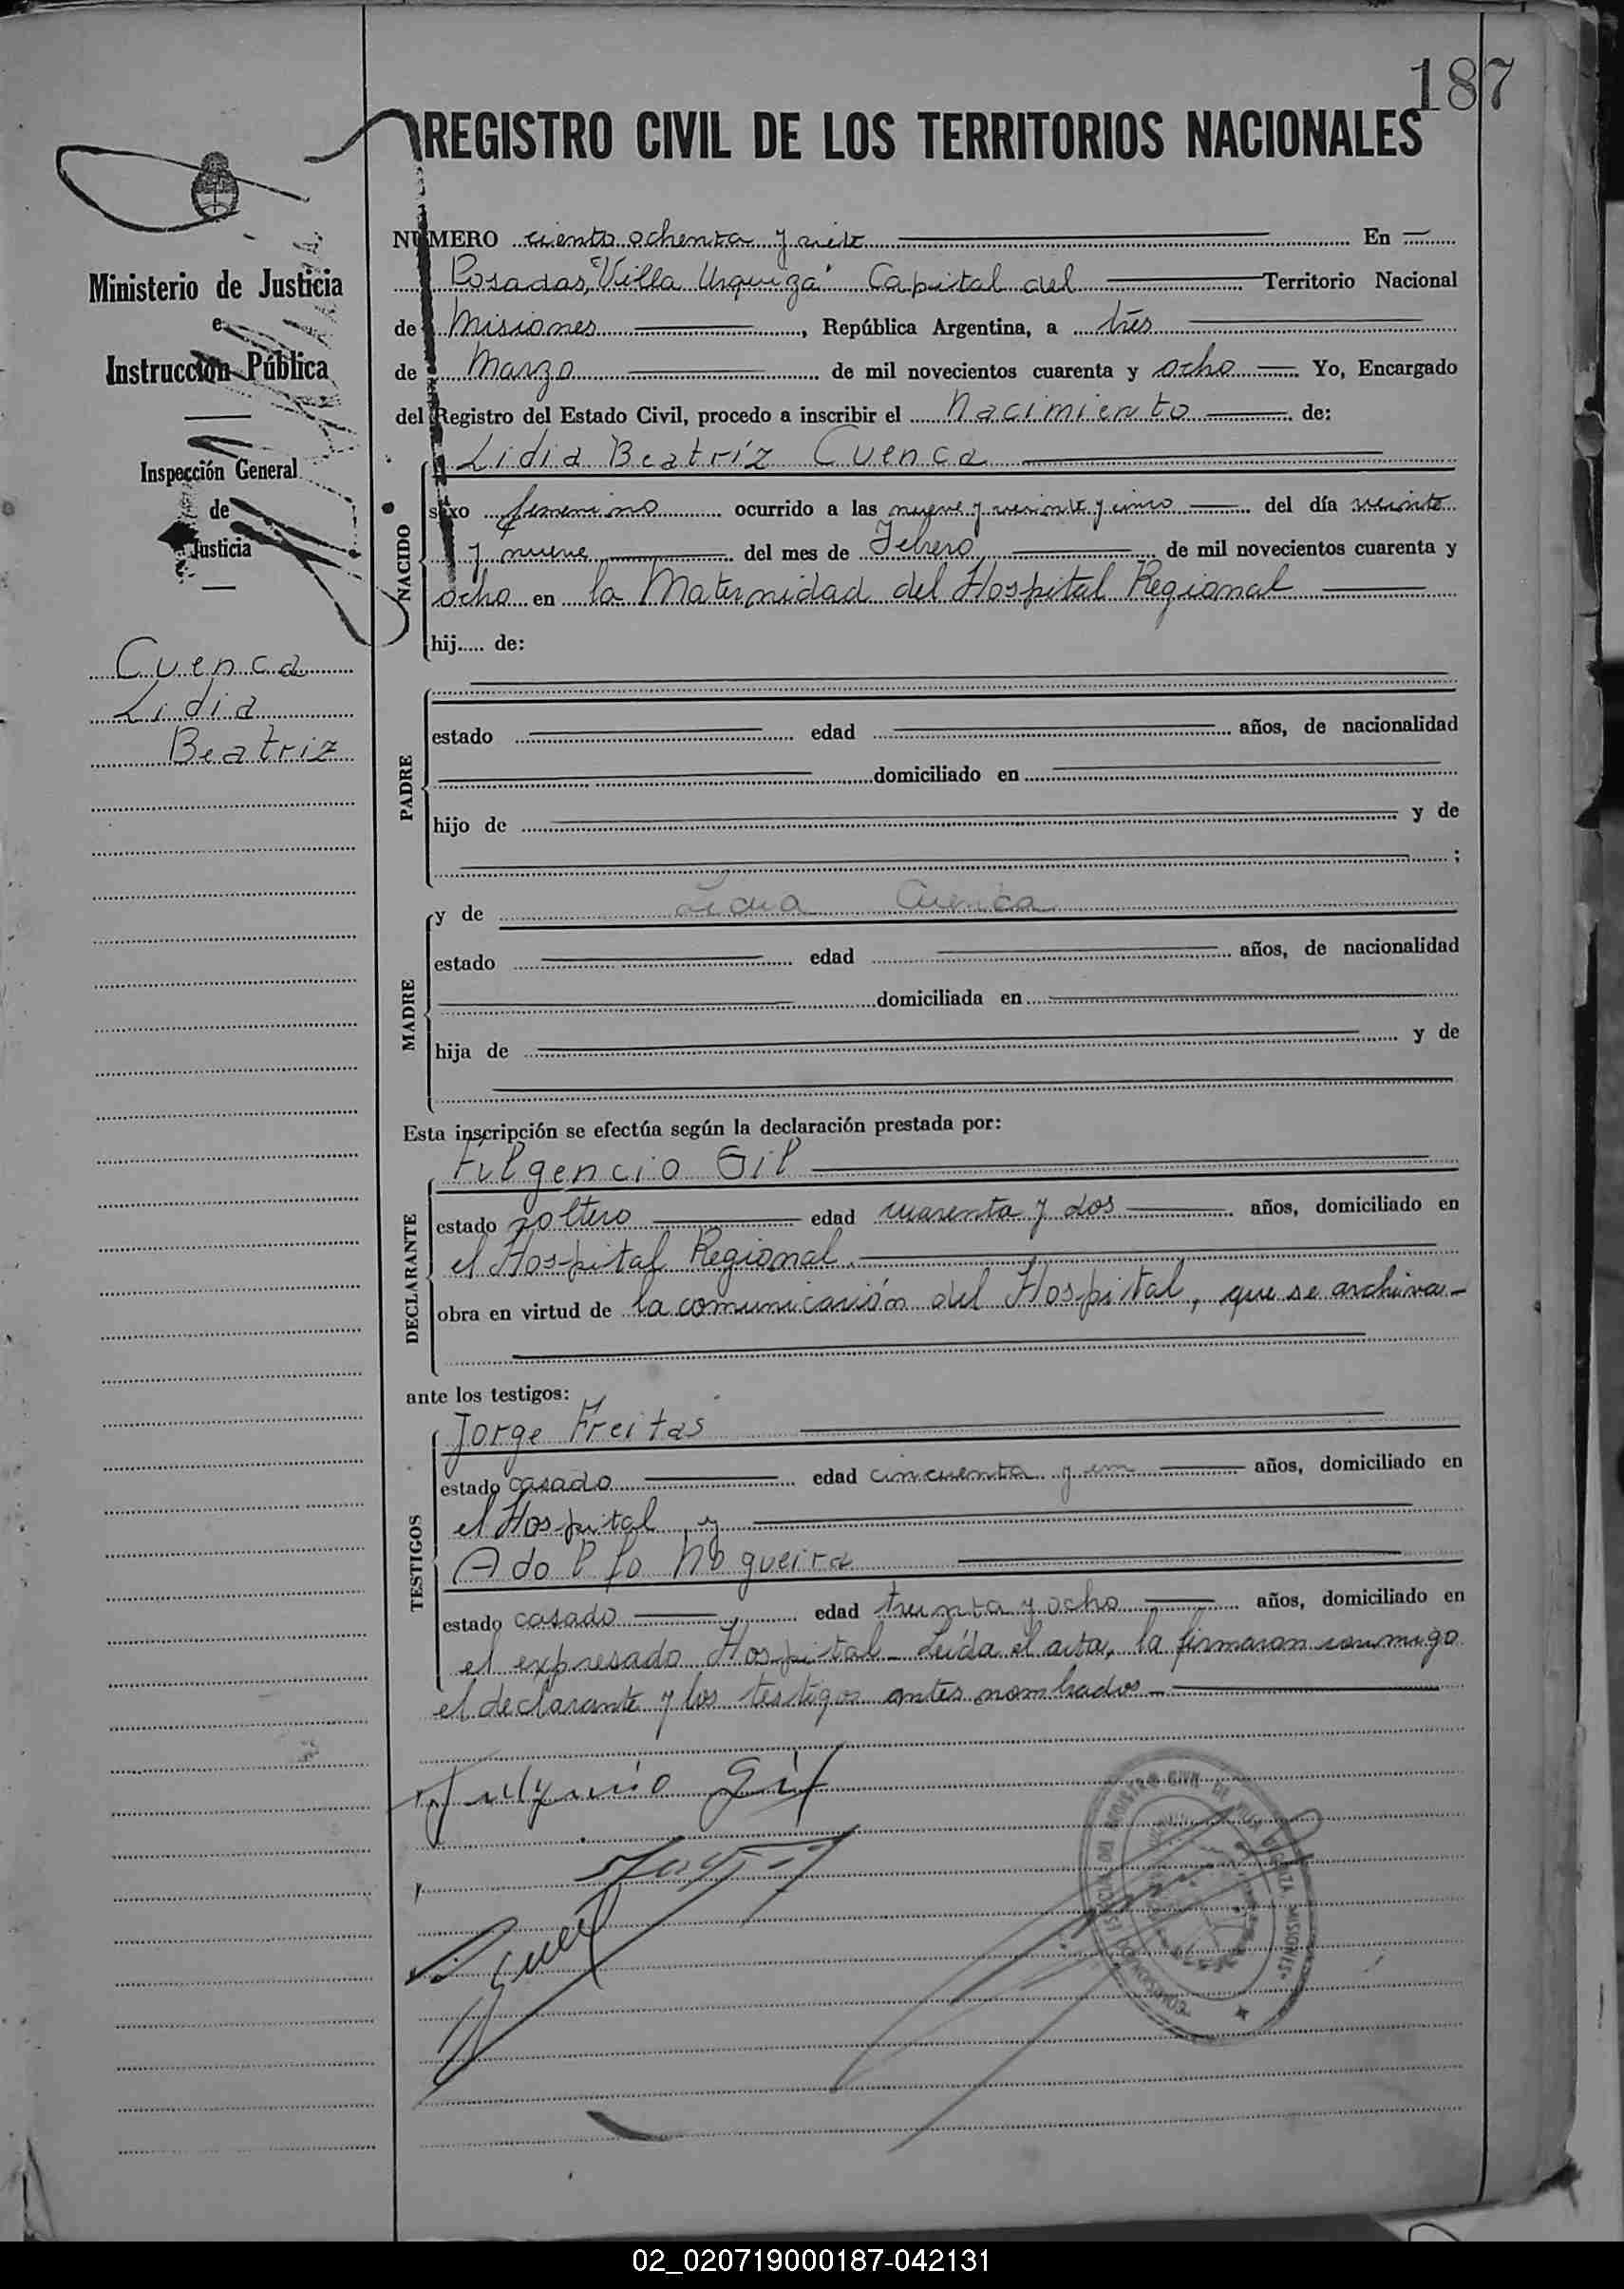 187
REGISTRO CIVIL DE LOS TERRITORIOS NACIONALES
Ministerio de Justicia
e
Instrucción Pública
Inspección General
de
Justicia
Cuenca
Lidia
Beatriz
NUMERO ciento ochenta y siete En
Posadas, "Villa Urquiza" Capital del Territorio Nacional
de Misiones, República Argentina, a tres
de Marzo de mil novecientos cuarenta y ocho Yo, Encargado
del Registro del Estado Civil, procedo a inscribir el Nacimiento de:
NACIDO
Lidia Beatríz Cuenca
sexo femenino ocurrido a las nueve y veinte y cinco del día veinte
y nueve del mes de Febrero de mil novecientos cuarenta y
ocho en la Maternidad del Hospital Regional
hij..... de:
PADRE
estado edad años, de nacionalidad
domiciliado en
hijo de y de
;
MADRE
y de Lidia Cuenca
estado edad años, de nacionalidad
domiciliada en
hija de y de
Esta inscripción se efectúa según la declaración prestada por:
DECLARANTE
Fulgencio Gil
estado soltero edad cuarenta y dos años, domiciliado en
el Hospital Regional.
obra en virtud de la comunicación del Hospital, que se archiva-
ante los testigos:
TESTIGOS
Jorge Freitas
estado casado edad cincuenta y un años, domiciliado en
el Hospital y
Adolfo Nogueira
estado casado edad treinta y ocho años, domiciliado en
el expresado Hospital- Leída el acta, la firmaron conmigo
el declarante y los testigos antes nombrados-
Fulgencio Gil
REGISTRO CIVIL DE VILLA URQUIZA MISIONES
02_020719000187-042131